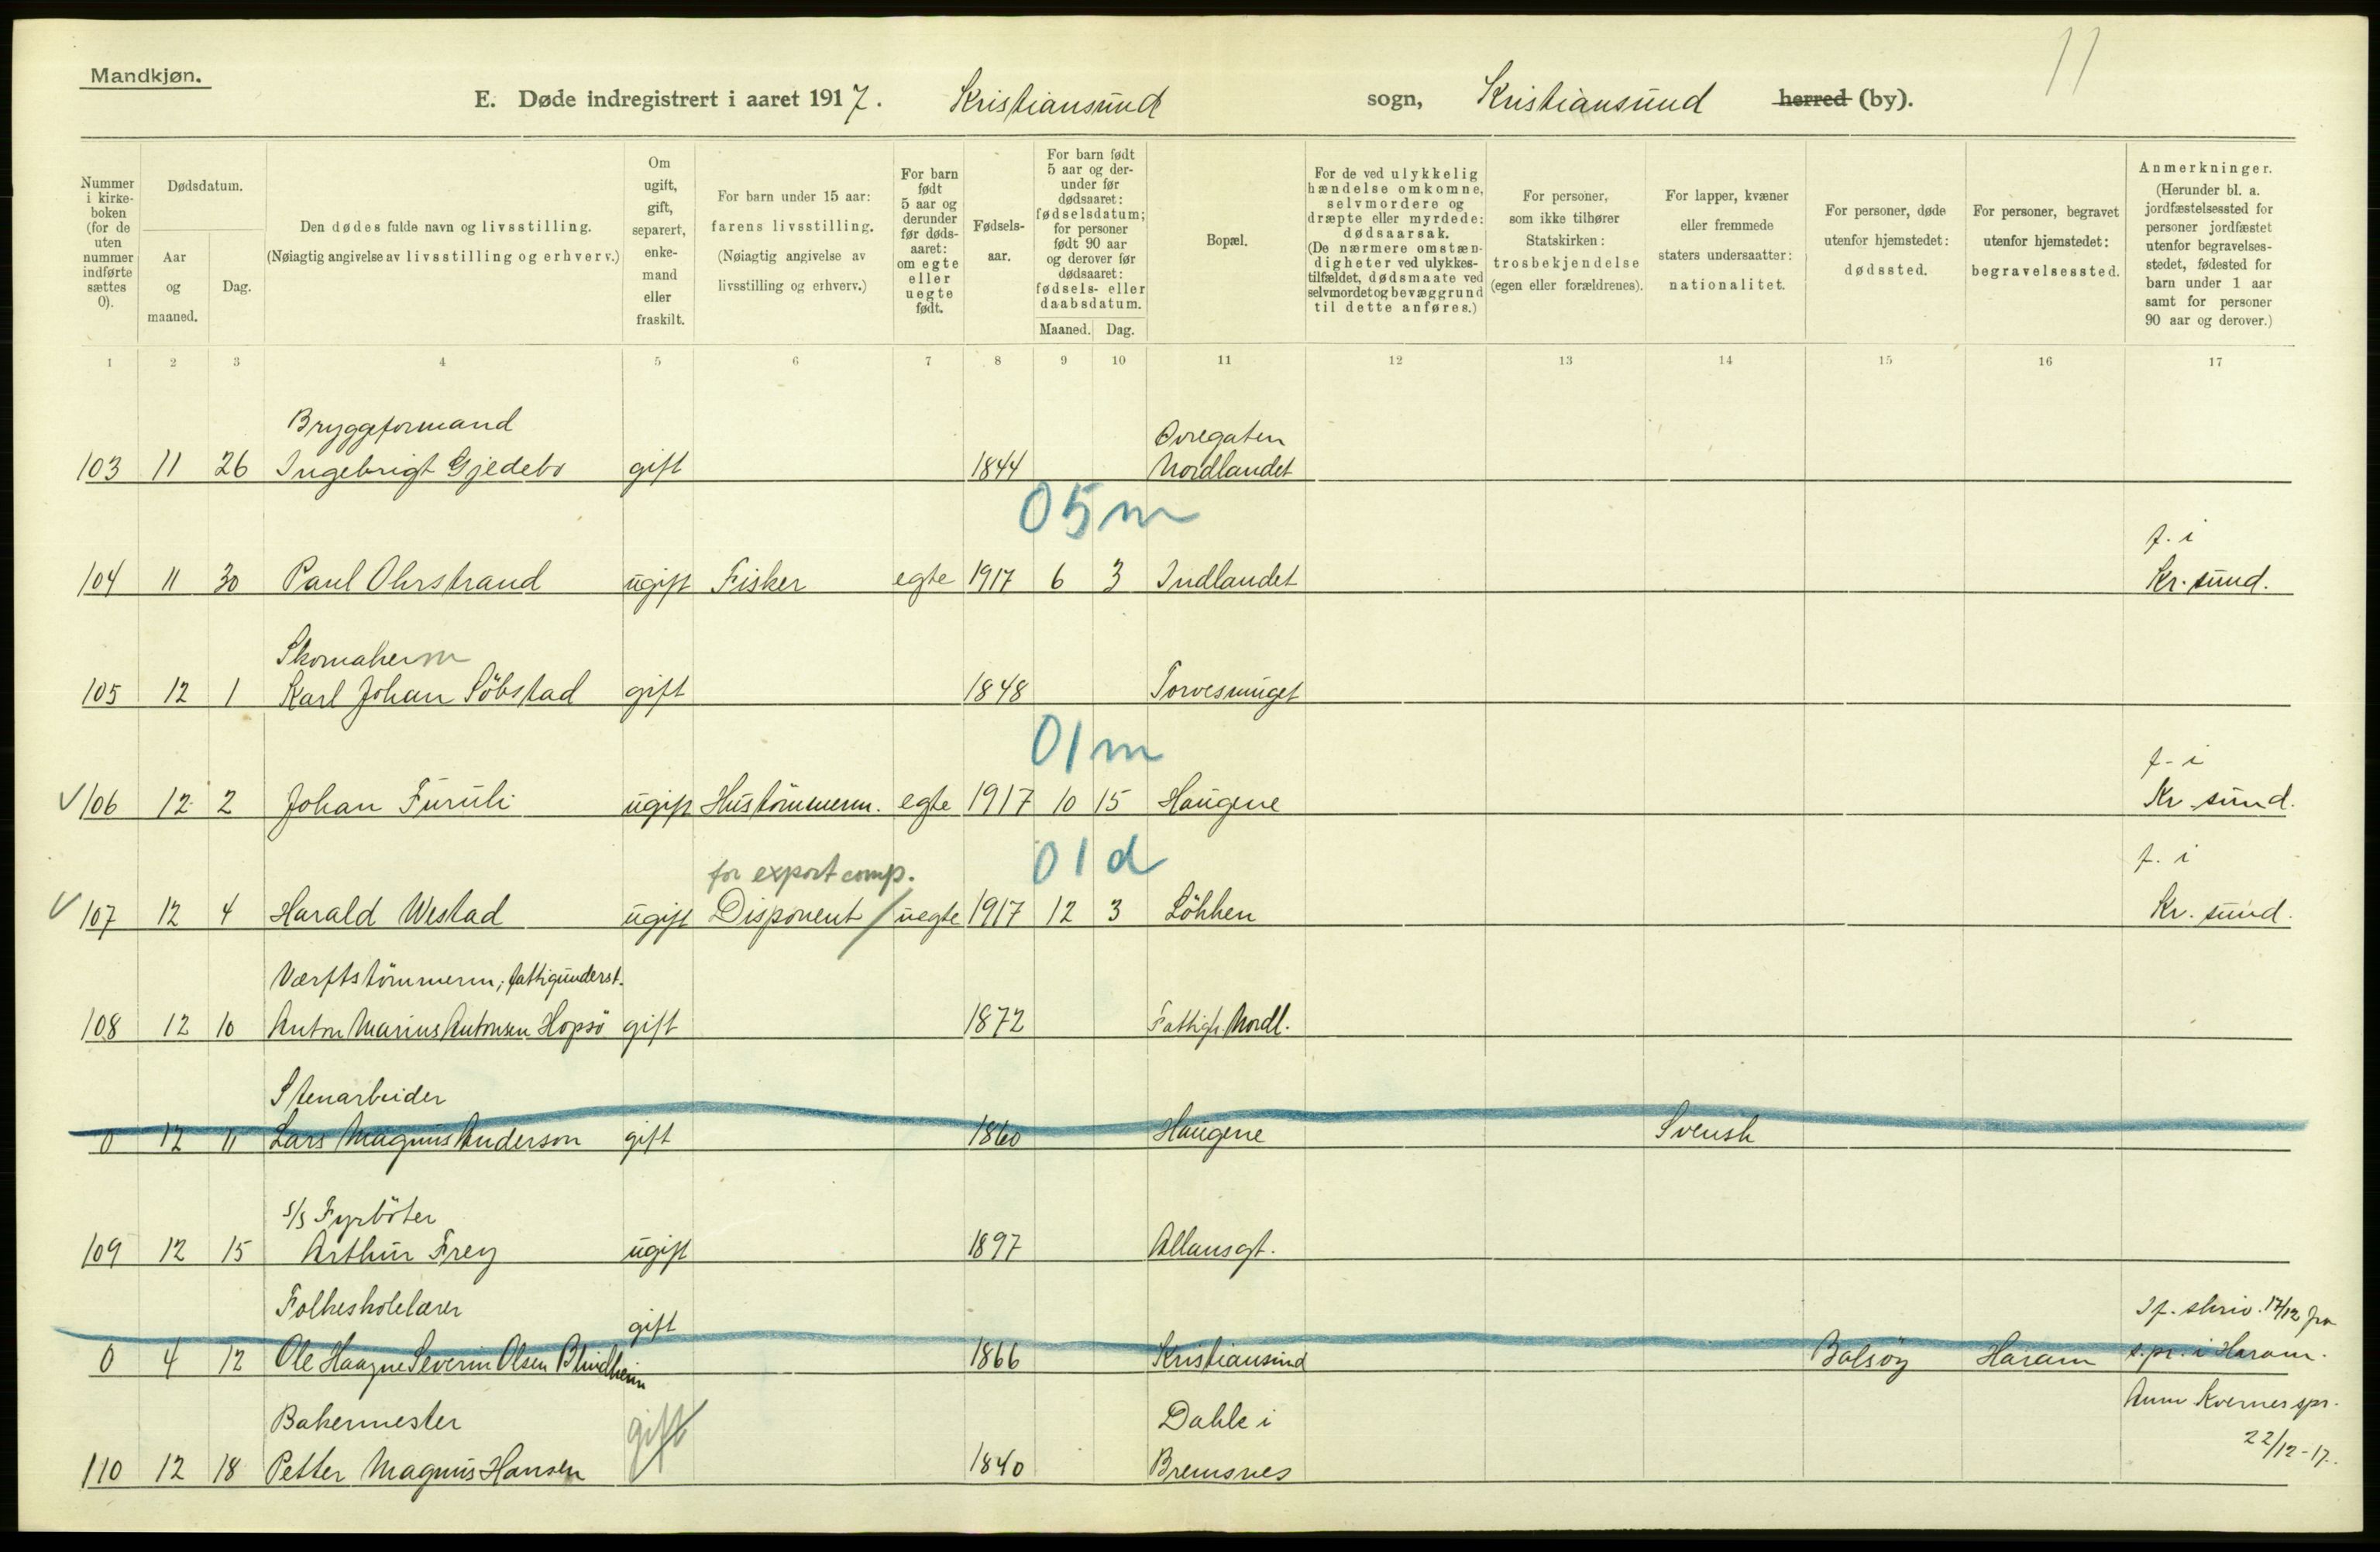 11
Mandkjøn.
E. Døde indregistrert i aaret 1917. Kristiansund sogn, Kristiansund herred (by).
Nummer i kirkeboken (for de uten nummer indførte sættes 0).
Dødsdatum.
Aar og maaned.
Dag.
Den dødes fulde navn og livsstilling. (Nøiagtig angivelse av livsstilling og erhverv.)
Om ugift, gift, separert, enkemand eller fraskilt.
For barn under 15 aar: farens livsstilling. (Nøiagtig angivelse av livsstilling og erhverv.)
For barn født 5 aar og derunder før dødsaaret: om egte eller uegte født.
Fødselsaar.
For barn født 5 aar og derunder før dødsaaret: fødselsdatum; for personer født 90 aar og derover før dødsaaret: fødsels- eller daabsdatum.
Maaned. Dag.
Bopæl.
For de ved ulykkelig hændelse omkomne, selvmordere og dræpte eller myrdede: dødsaarsak. (De nærmere omstændigheter ved ulykkestilfældet, dødsmaate ved selvmordet og bevæggrund til dette anføres.)
For personer, som ikke tilhører Statskirken: trosbekjendelse (egen eller forældrenes).
For lapper, kvæner eller fremmede staters undersaatter: nationalitet.
For personer, døde utenfor hjemstedet: dødssted.
For personer, begravet utenfor hjemstedet: begravelsessted.
Anmerkninger. (Herunder bl. a. jordfæstelsessted for personer jordfæstet utenfor begravelsesstedet, fødested for barn under 1 aar samt for personer 90 aar og derover.)
1 2 3 4 5 6 7 8 9 10 11 12 13 14 15 16 17
Bryggeformand Øvregaten
103 11 26 Ingebrigt Gjedebo gift 1844 Nordlandet
05 m
f. i
104 11 30 Paul Ohrstrand ugift Fisker egte 1917 6 3 Indlandet Kr. sund.
Skomakerm
105 12 1 Karl Johan Söbstad gift 1848 Torvesmuget
01 m
f. i
✓ 106 12 2 Johan Furuli ugift Hustömmerm. egte 1917 10 15 Haugene Kr. sund.
for export comp. 01 d f. i
✓ 107 12 4 Harald Westad ugift Disponent / uegte 1917 12 3 Lökken Kr. sund.
Værftstömmerm, fattigunderst.
108 12 10 Anton Marius Antonsen Hopsö gift 1872 Fattigh. Nordl.
Stenarbeider
0 12 11 Lars Magnus Anderson gift 1860 Haugene Svensk
s/s Fyrböter
109 12 15 Arthur Frey ugift 1897 Allansgt.
Folkeskolelærer gift If. skriv. 17/12 fra
0 4 12 Ole Haagne Severin Olsen Blindheim 1866 Kristiansund Bolsöy Haram s.pr. i Haram.
Bakermester gift Dahle i Anm Kvernes spr.
110 12 18 Petter Magnus Hansen 1840 Bremsnes 22/12-17.